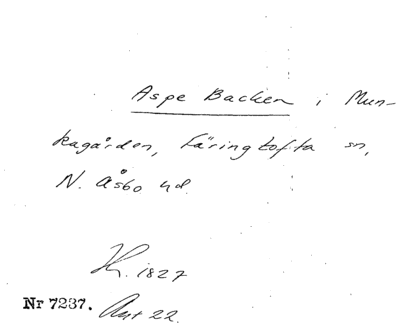 Aspe Backen i Mun-
kagården, Färingtofta sn,
N. Åsbo hd.
Kr. 1827
Nr 7237. Avt 22.